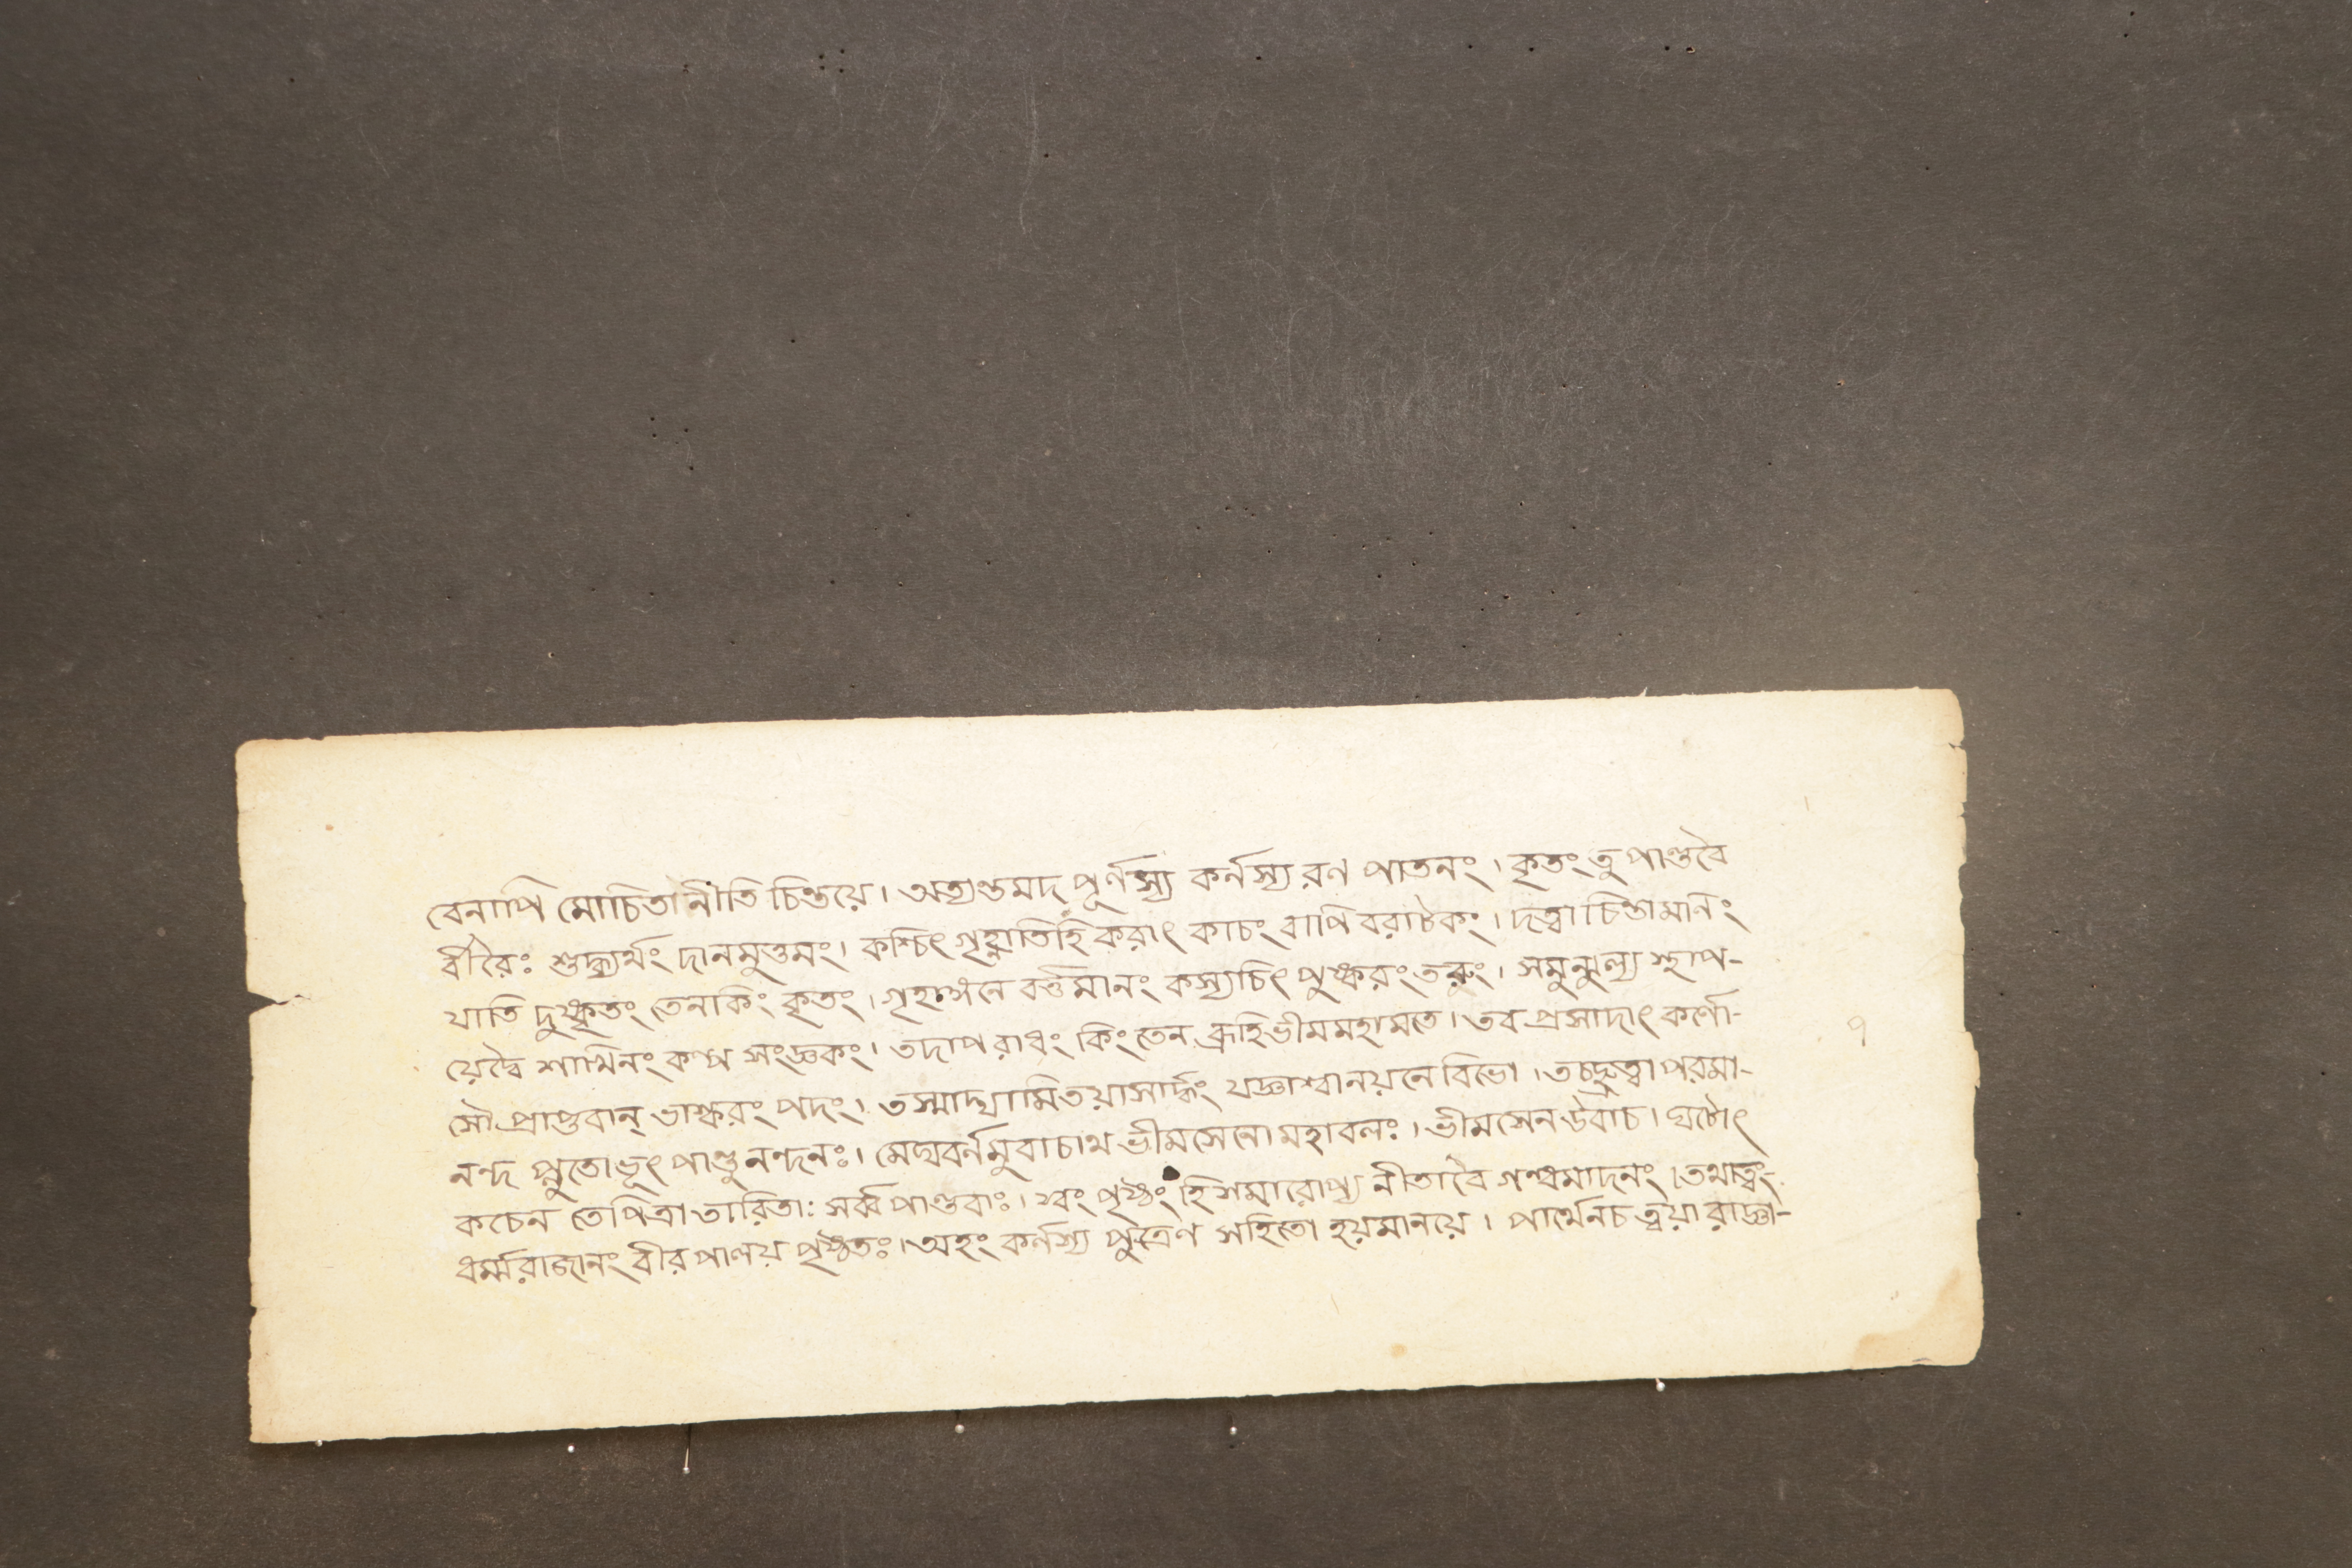 বেনাপি মোচিতানীতি চিন্তয়ে। অত্যন্তমদ পূর্ণস্য কর্নস্য রণ পাতনং। কৃতং তু পাণ্ডবৈ
র্বীরৈঃ শুদ্ধ্যর্থং দানমুত্তমং। কশ্চিৎ গৃহ্ণাতিহি করাৎ কাচং বাপি বরাটকং। দত্বা চিন্তামনিং
যাতি দুষ্কৃতং তেনকিং কৃতং। গৃহাঙ্গনে বর্ত্তমানং কস্যচিৎ পুষ্করং তরুং। সমুন্মুল্য স্থাপ-
য়েদ্বৈ শাখিনং কল্প সংজ্ঞকং। তদাপরাধং কিং তেন ব্রূহিভীমমহামতে। তব প্রসাদাৎ কর্ণো-
সৌ প্রাপ্তবান্ ভাস্করং পদং। তস্মাদ্যামিতয়াসার্দ্ধং যজ্ঞাশ্বানয়নে বিভো। তচ্ছ্রুত্বা পরমা-
নন্দ প্লুতোভূৎ পাণ্ডুনন্দনঃ। মেঘবর্নমুবাচাথ ভীমসেনো মহাবলঃ। ভীমসেন উবাচ। ঘটোৎ
কচেন তেপিত্রা তারিতাঃ সর্ব্বপাণ্ডবাঃ। স্বং পৃষ্ঠং হি সমারোপ্য নীতাবৈ গন্ধমাদনং। তথাত্বং-
ধর্ম্মরাজানং বীর পালয় পৃষ্ঠতঃ। অহং কর্নস্য পুত্রেণ সহিতো হয়মানয়ে। পার্থেনচ ত্বয়া রাজ্ঞা-
৭